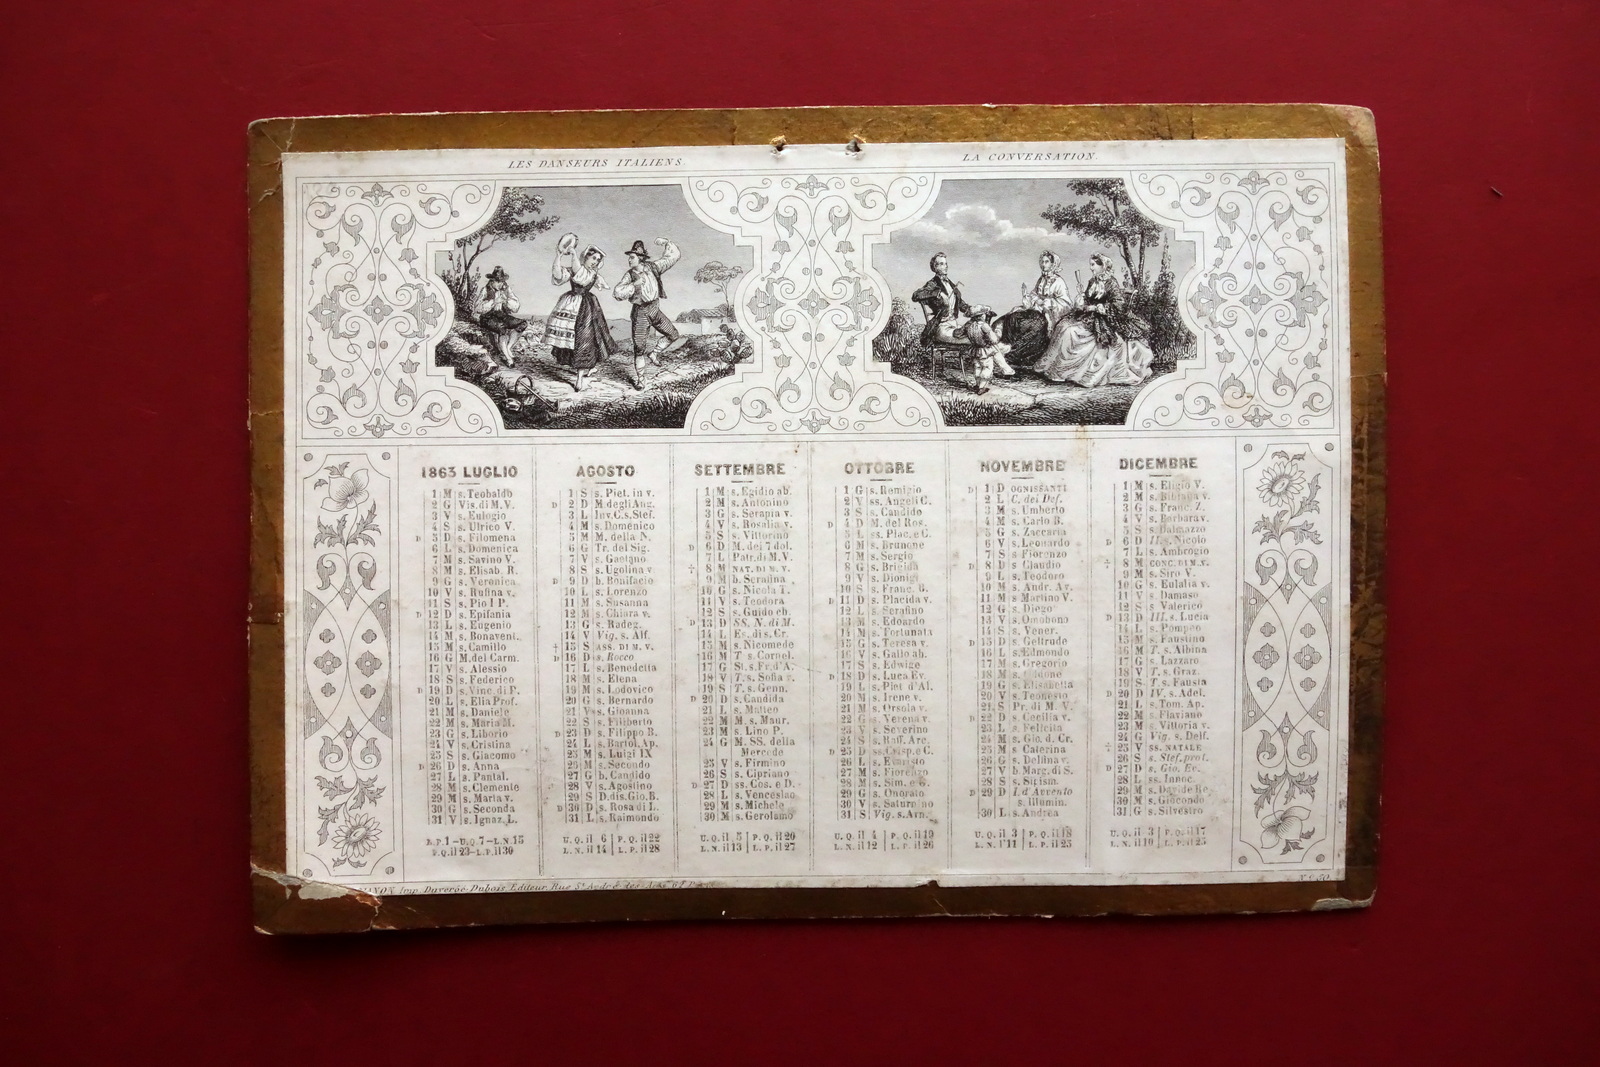 LES DANSEURS ITALIENS.
LA CONVERSATION.
1863 LUGLIO
1 M s. Teobaldo
2 G Vis. di M. V.
3 V s. Eulogio
4 S s. Ulrico V.
D 5 D s. Filomena
6 L s. Domenica
7 M s. Savino V.
8 M s. Elisab. R.
9 G s. Veronica
10 V s. Rufina v.
11 S s. Pio I P.
D 12 D s. Epifania
13 L s. Eugenio
14 M s. Bonavent.
15 M s. Camillo
16 G M. del Carm.
17 V s. Alessio
18 S s. Federico
D 19 D s. Vinc. di P.
20 L s. Elia Prof.
21 M s. Daniele
22 M s. Maria M.
23 G s. Liborio
24 V s. Cristina
25 S s. Giacomo
D 26 D s. Anna
27 L s. Pantal.
28 M s. Clemente
29 M s. Marta v.
30 G s. Seconda
31 V s. Ignaz. L.
L.P. 1 - U.Q. 7 - L.N. 15
P.Q. il 23 - L.P. il 30
AGOSTO
1 S s. Piet. in v.
D 2 D M. degli Ang.
3 L Inv. C. s. Stef.
4 M s. Domenico
5 M M. della N.
6 G Tr. del Sig.
7 V s. Gaetano
8 S s. Ugolina v.
D 9 D b. Bonifacio
10 L s. Lorenzo
11 M s. Susanna
12 M s. Chiara v.
13 G s. Radeg.
14 V Vig. s. Alf.
† 15 S ASS. DI M. V.
D 16 D s. Rocco
17 L s. Benedetta
18 M s. Elena
19 M s. Lodovico
20 G s. Bernardo
21 V s. Gioanna
22 S s. Filiberto
D 23 D s. Filippo B.
24 L s. Bartol. Ap.
25 M s. Luigi IX
26 M s. Secondo
27 G b. Candido
28 V s. Agostino
29 S D. dis. Gio. B.
D 30 D s. Rosa di L.
31 L s. Raimondo
U. Q. il 6 | P. Q. il 22
L. N. il 14 | L. P. il 28
SETTEMBRE
1 M s. Egidio ab.
2 M s. Antonino
3 G s. Serapia v.
4 V s. Rosalia v.
5 S s. Vittorino
D 6 D M. dei 7 dol.
7 L Patr. di M. V.
† 8 M NAT. DI M. V.
9 M b. Serafina
10 G s. Nicola T.
11 V s. Teodora
12 S s. Guido cb.
D 13 D SS. N. di M.
14 L Es. di s. Cr.
15 M s. Nicomede
16 M T. s. Cornel.
17 G St. s. Fr. d'A.
18 V T. s. Sofia v.
19 S T. s. Genn.
D 20 D s. Candida
21 L s. Matteo
22 M M. s. Maur.
23 M s. Lino P.
24 G M. SS. della
Mercede
25 V s. Firmino
26 S s. Cipriano
D 27 D ss. Cos. e D.
28 L s. Venceslao
29 M s. Michele
30 M s. Gerolamo
U. Q. il 5 | P. Q. il 20
L. N. il 13 | L. P. il 27
OTTOBRE
1 G s. Remigio
2 V ss. Angeli C.
3 S s. Candido
D 4 D M. del Ros.
5 L ss. Plac. e C.
6 M s. Brunone
7 M s. Sergio
8 G s. Brigida
9 V s. Dionigi
10 S s. Franc. B.
D 11 D s. Placida v.
12 L s. Serafino
13 M s. Edoardo
14 M s. Fortunata
15 G s. Teresa v.
16 V s. Gallo ab.
17 S s. Edwige
D 18 D s. Luca Ev.
19 L s. Piet. d'Al.
20 M s. Irene v.
21 M s. Orsola v.
22 G s. Verena v.
23 V s. Severino
24 S s. Raff. Arc.
D 25 D ss. Crisp. e C.
26 L s. Evaristo
27 M s. Fiorenzo
28 M s. Sim. e G.
29 G s. Onorato
30 V s. Saturnino
31 S Vig. s. Arn.
U. Q. il 4 | P. Q. il 19
L. N. il 12 | L. P. il 26
NOVEMBRE
D 1 D OGNISSANTI
2 L C. dei Def.
3 M s. Umberto
4 M s. Carlo B.
5 G s. Zaccaria
6 V s. Leonardo
7 S s. Fiorenzo
D 8 D s. Claudio
9 L s. Teodoro
10 M s. Andr. Av.
11 M s. Martino V.
12 G s. Diego
13 V s. Omobono
14 S s. Vener.
D 15 D s. Geltrude
16 L s. Edmondo
17 M s. Gregorio
18 M s.
19 G s. Elisabetta
20 V s. Teonesto
21 S Pr. di M. V.
D 22 D s. Cecilia v.
23 L s. Felicita
24 M s. Gio. d. Cr.
25 M s. Caterina
26 G s. Delfina v.
27 V b. Marg. di S.
28 S s. Sitism.
D 29 D I. d'Avvento
s. Illumin.
30 L s. Andrea
U. Q. il 3 | P. Q. il 18
L. N. l'11 | L. P. il 25
DICEMBRE
1 M s. Eligio V.
2 M s. Bibiana v.
3 G s. Franc. Z.
4 V s. Barbara v.
5 S s. Dalmazzo
D 6 D II. s. Nicolo
7 L s. Ambrogio
† 8 M CONC. DI M. V.
9 M s. Siro V.
10 G s. Eulalia v.
11 V s. Damaso
12 S s. Valerico
D 13 D III. s. Lucia
14 L s. Pompeo
15 M s. Faustino
16 M T. s. Albina
17 G s. Lazzaro
18 V T. s. Graz.
19 S T. s. Fausta
D 20 D IV. s. Adel.
21 L s. Tom. Ap.
22 M s. Flaviano
23 M s. Vittoria v.
24 G Vig. s. Delf.
† 25 V SS. NATALE
26 S s. Stef. prot.
D 27 D s. Gio. Ev.
28 L ss. Innoc.
29 M s. Davide Re
30 M s. Giocondo
31 G s. Silvestro
U. Q. il 3 | P. Q. il 17
L. N. il 10 | L. P. il 25
Imp. Daveroé-Dubois, Editeur Rue St André des Arts
No 50.